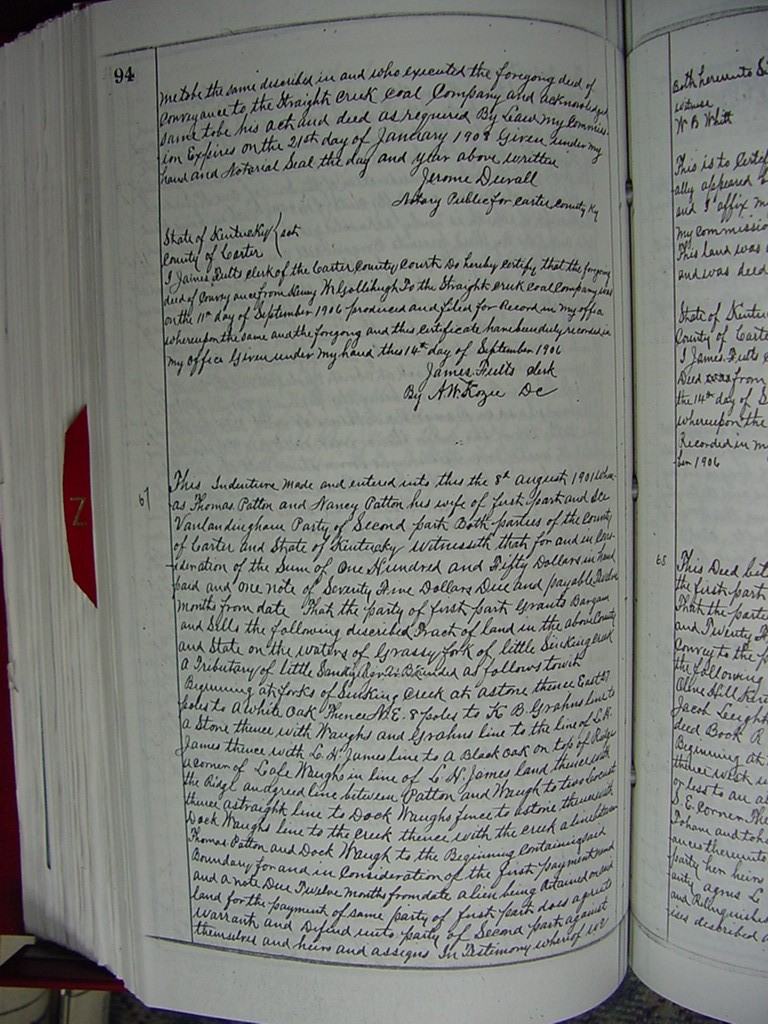 94
me to be the same described in and who executed the foregoing deed of
Conveyance to the Straight Creek Coal Company and acknowledged
same to be his act and deed as required By Law My Commiss-
ion Expires on the 21st day of January 1908 Given under my
hand and Notarial Seal the day and year above written
Jerome Duvall
Notary Public for Carter County Ky
State of Kentucky } sct
County of Carter
I James Fults clerk of the Carter County Court Do hereby certify that the foregoing
deed of conveyance from Henry W Gollihugh To the Straight Creek Coal Company was
on the 11th day of September 1906 produced and filed for Record in my office
whereupon the same and the foregoing and this certificate have been duly recorded in
my office Given under my hand this 14th day of September 1906
James Fults clerk
By A.W. Kozee Dc
67
This Indenture made and entered into this the 8th august 1901 Where-
as Thomas Patton and Nancy Patton his wife of first part and
Vanlandingham Party of Second part Both parties of the County
of Carter and State of Kentucky witnesseth that for and in Cons-
ideration of the Sum of One Hundred and Fifty Dollars in hand
paid and one note of Seventy Five Dollars Due and payable Twelve
months from date That the party of first part Grants Bargain
and Sells the following described Tract of land in the above County
and State on the waters of Grassy fork of little Sinking Creek
a Tributary of little Sandy River Bounded as follows towit
Beginning at forks of Sinking Creek at a stone thence East 27
poles to a white Oak Thence N.E. 8 poles to K B. Grahns line to
a Stone thence with Waughs and Grahns line to the line of L.H.
James thence with L. H. James line to a Black oak on top of Ridge
a corner of Lafe Waughs in line of L. H. James land thence with
the Ridge an agreed line between Patton and Waugh to two Locust
thence a straight line to Dock Waughs fence to a stone thence with
Dock Waughs line to the creek thence with the creek a line between
Thomas Patton and Dock Waugh to the Beginning Containing said
Boundary for and in Consideration of the first payment
and a note Due Twelve Months from date a lien being retained on said
land for the payment of same party of first part does agree to
warrant and Defend unto party of Second part against
themselves and heirs and assigns In Testimony whereof we
Both hereunto
witness
W B Whitt
This is to Certif
ally appeared
and I affix m
my commissio
This land was
and was deed
State of Kentu
County of Carte
I James Fults
Deed from
the 14th day of S
whereupon the
Recorded in m
ber 1906
68
This Deed bet
the first part
That the partie
and Twenty F
Convey to the p
the following
Olive Hill Kent
Jacob Leight
deed Book R
Beginning at
thence with
or less to an
S.E. corner The
To ha
ances thereunto
party her heirs
and Relinquishe
ises described